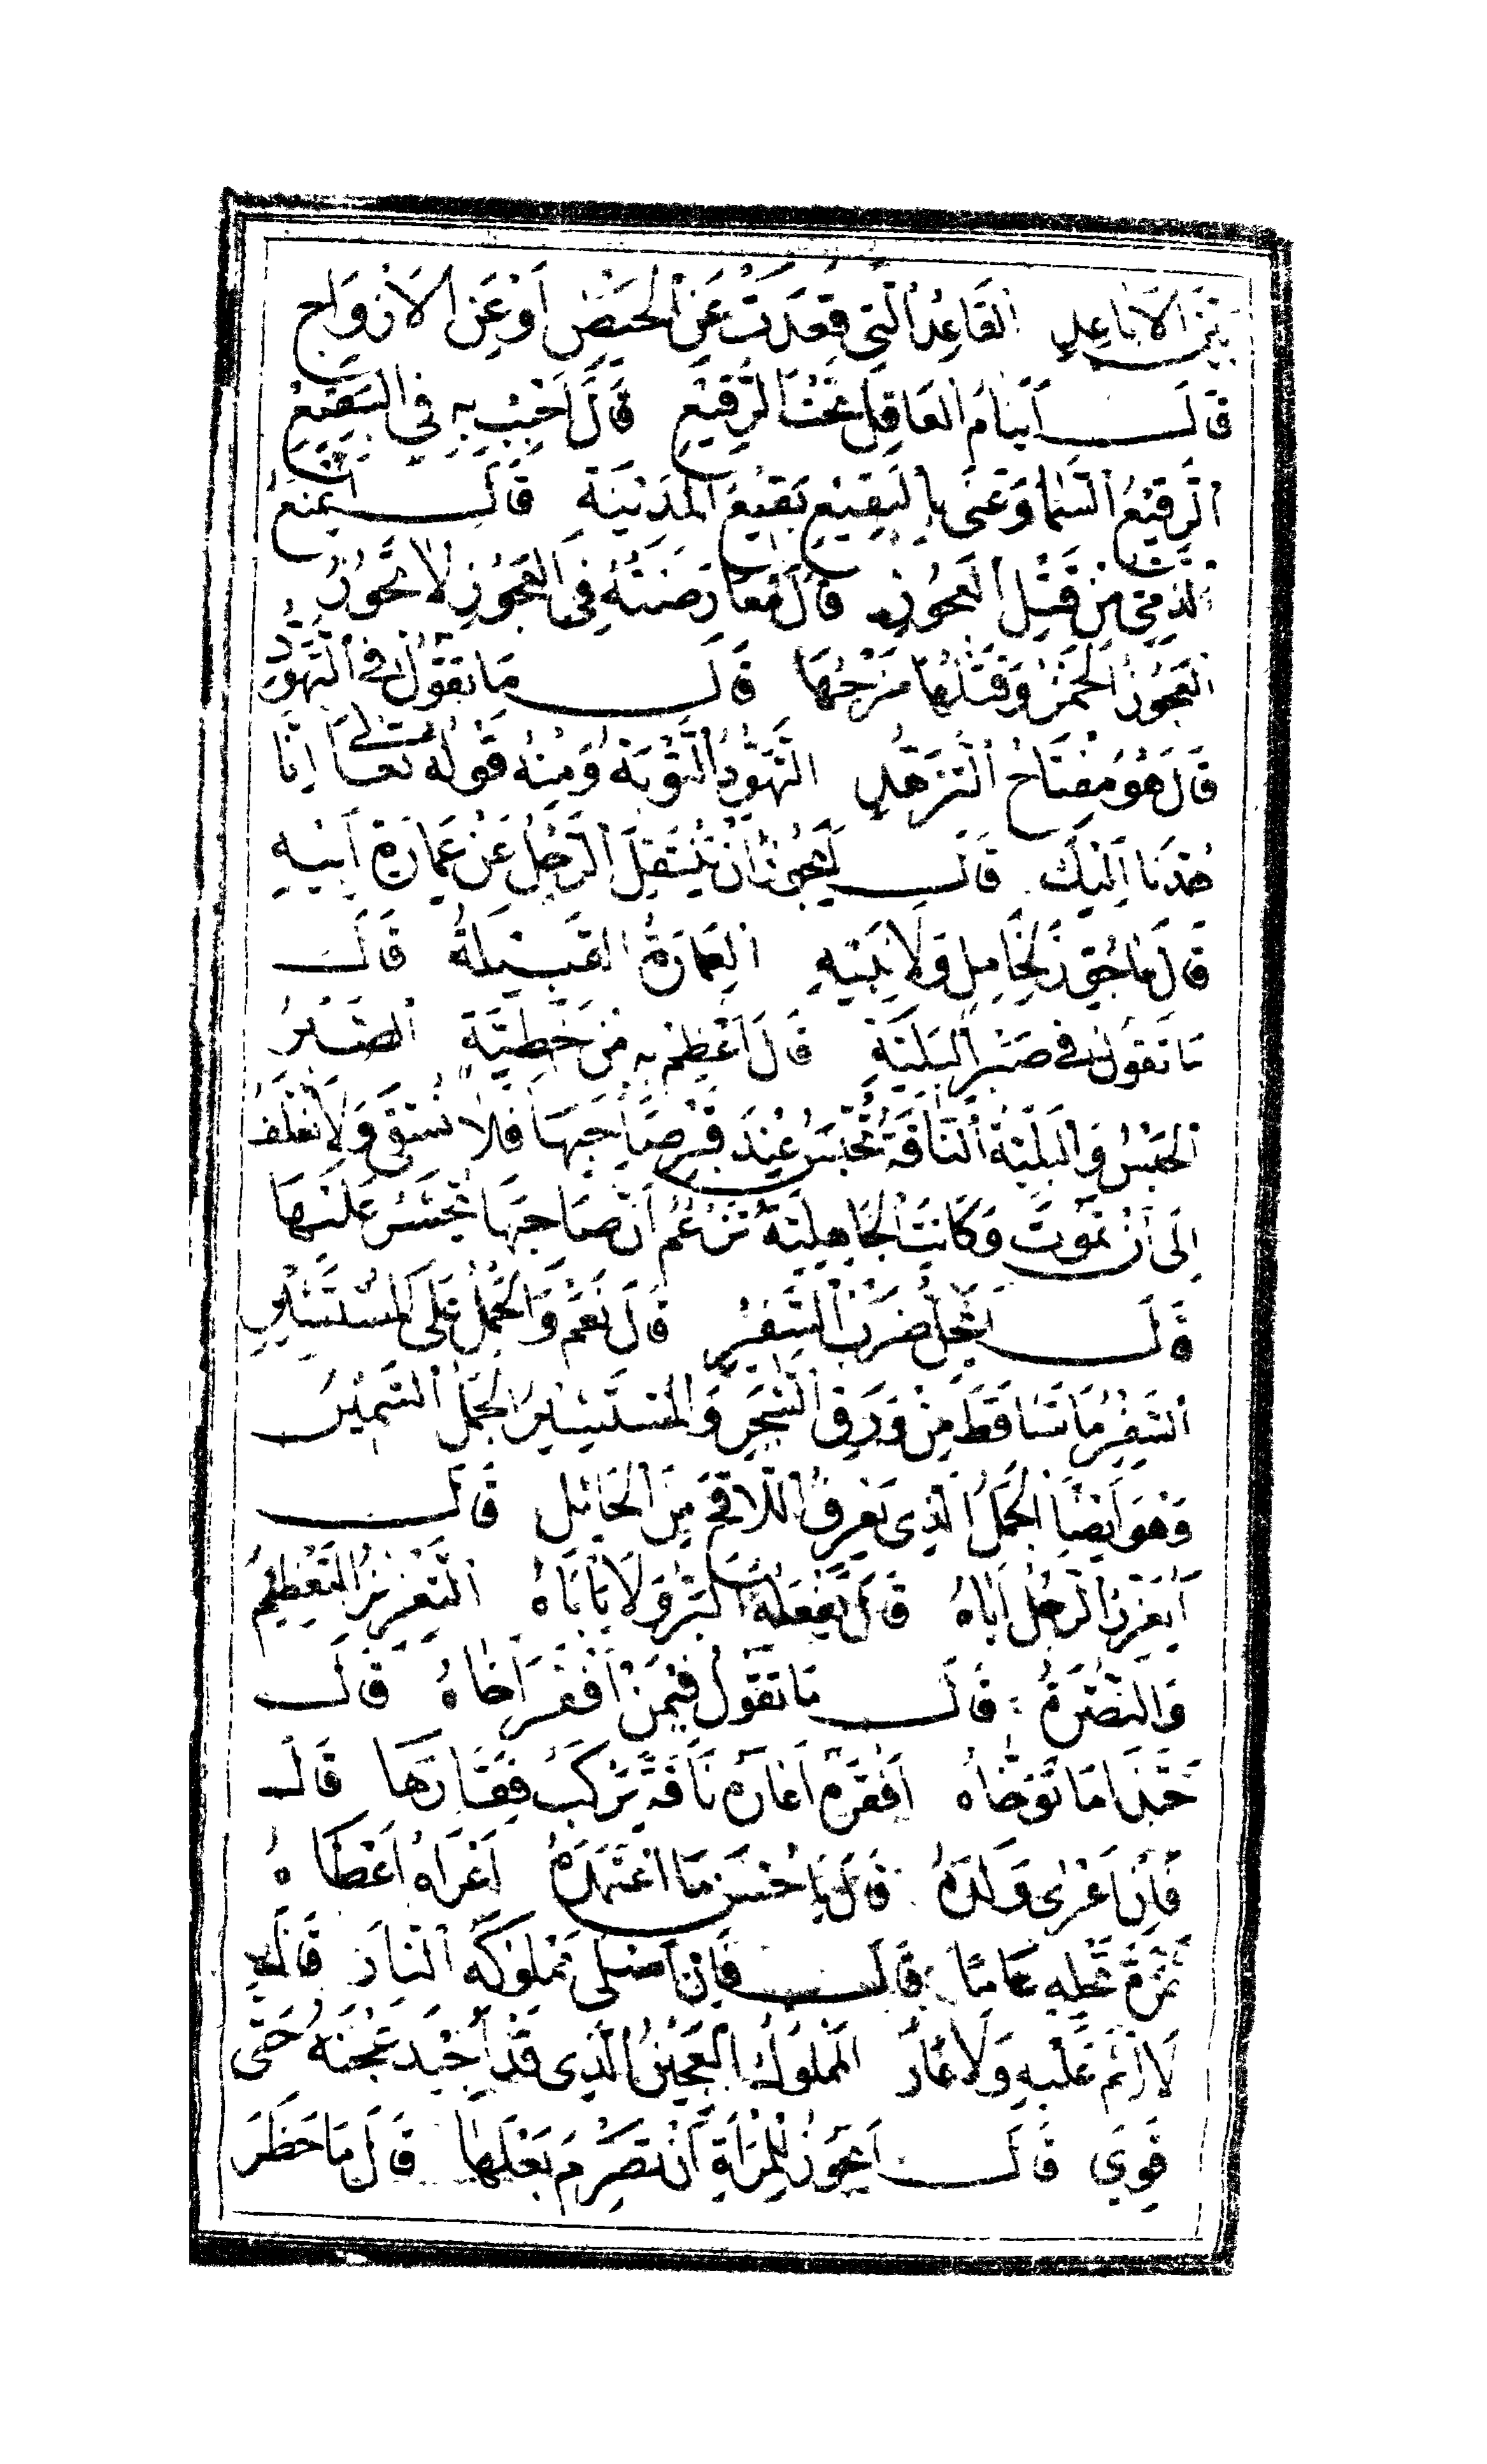 بَيْنَ الاَبَاعِدِ القَاعِدُ الَّتِي قَعَدَتْ عَنِ الْحَيْضِ اَوْ عَنِ الاَزْوَاجِ
قَالَ اَيَنَامُ العَاقِلُ تَحْتَ الرَّقِيعِ قَالَ اَحْبِبْ بِهِ فِي البَقِيعِ
الرَّقِيْعُ السَّمَا وَعَنَى بِالْبَقِيعِ بَقِيْعَ المَدِيْنَةِ قَالَ اَيُمْنَعُ
الذِّمِّيُّ مِنْ قَتْلِ العَجُوزِ قَالَ مُعَارَضَتُهُ فِي العَجُوزِ لاَ تَجُوزُ
العَجُوزُ الخَمْرُ وَقَتْلُهَا مَزْجُهَا قَالَ مَا تَقُولُ فِي التَّهَوُّدِ
قَالَ هُوَ مِفْتَاحُ التَّزَهُّدِ التَّهَوُّدُ التَّوْبَةُ وَمِنْهُ قَوْلُهُ تَعَالَى اِنَّا
هُدْنَا اِلَيْكَ قَالَ اَيَجُوزُ اَنْ يَنْتَقِلَ الرَّجُلُ عَنْ عِمَارَةِ اَبِيْهِ
قَالَ مَا جُوِّزَ لِخَامِلٍ وَلاَ نَبِيْهٍ العِمَارَةُ القَبِيْلَةُ قَالَ
مَا تَقُولُ فِي صَبْرِ البَلِيَّةِ قَالَ اَعْظِمْ بِهِ مِنْ خَطِيَّةٍ الصَّبْرُ
الحَبْسُ وَالبَلِيَّةُ النَّاقَةُ تُحْبَسُ عِنْدَ قَبْرِ صَاحِبِهَا فَلاَ تُسْقَى وَلاَ تُعْلَفُ
اِلَى اَنْ تَمُوْتَ وَكَانَتِ الجَاهِلِيَّةُ تَزْعُمُ اَنَّ صَاحِبَهَا يُحْشَرُ عَلَيْهَا
قَالَ اَيَحِلُّ ضَرْبُ السَّفِيْرِ قَالَ نَعَمْ وَالحَمْلُ عَلَى المُسْتَشِيْرِ
السَّفِيْرُ مَا تَسَاقَطَ مِنْ وَرَقِ الشَّجَرِ وَالمُسْتَشِيْرُ الجَمَلُ السَّمِيْنُ
وَهُوَ اَيْضًا الجَمَلُ الَّذِي يَعْرِفُ اللاَّقِحَ مِنَ الحَائِلِ قَالَ
اَيُعَزِّرُ الرَّجُلُ اَبَاهُ قَالَ يَفْعَلُهُ البَرُّ وَلاَ يَابَاهُ التَّعْزِيْرُ التَّعْظِيْمُ
وَالنُّصْرَةُ قَالَ مَا تَقُوْلُ فِيْمَنْ اَفْقَرَ اَخَاهُ قَالَ
حَبَّذَا مَا تَوَخَّاهُ اَفْقَرَهُ اَعَارَهُ نَاقَةً يَرْكَبُ فَقَارَهَا قَالَ
فَاِنْ اَعْرَى وَلَدَهُ قَالَ يَا حُسْنَ مَا اعْتَمَدَهُ اَعْرَاهُ اَعْطَاهُ
ثَمَرَةَ نَخْلِهِ عَامًا قَالَ فَاِنْ اَصْلَى مَمْلُوْكَهُ النَّارَ قَالَ
لاَ اِثْمَ عَلَيْهِ وَلاَ عَارَ المَمْلُوْكُ العَجِيْنُ الَّذِي قَدْ اُجِيْدَ عَجْنُهُ حَتَّى
قَوِيَ قَالَ اَيَجُوزُ لِلْمَرْاَةِ اَنْ تَصْرِمَ بَعْلَهَا قَالَ مَا حَظَرَ